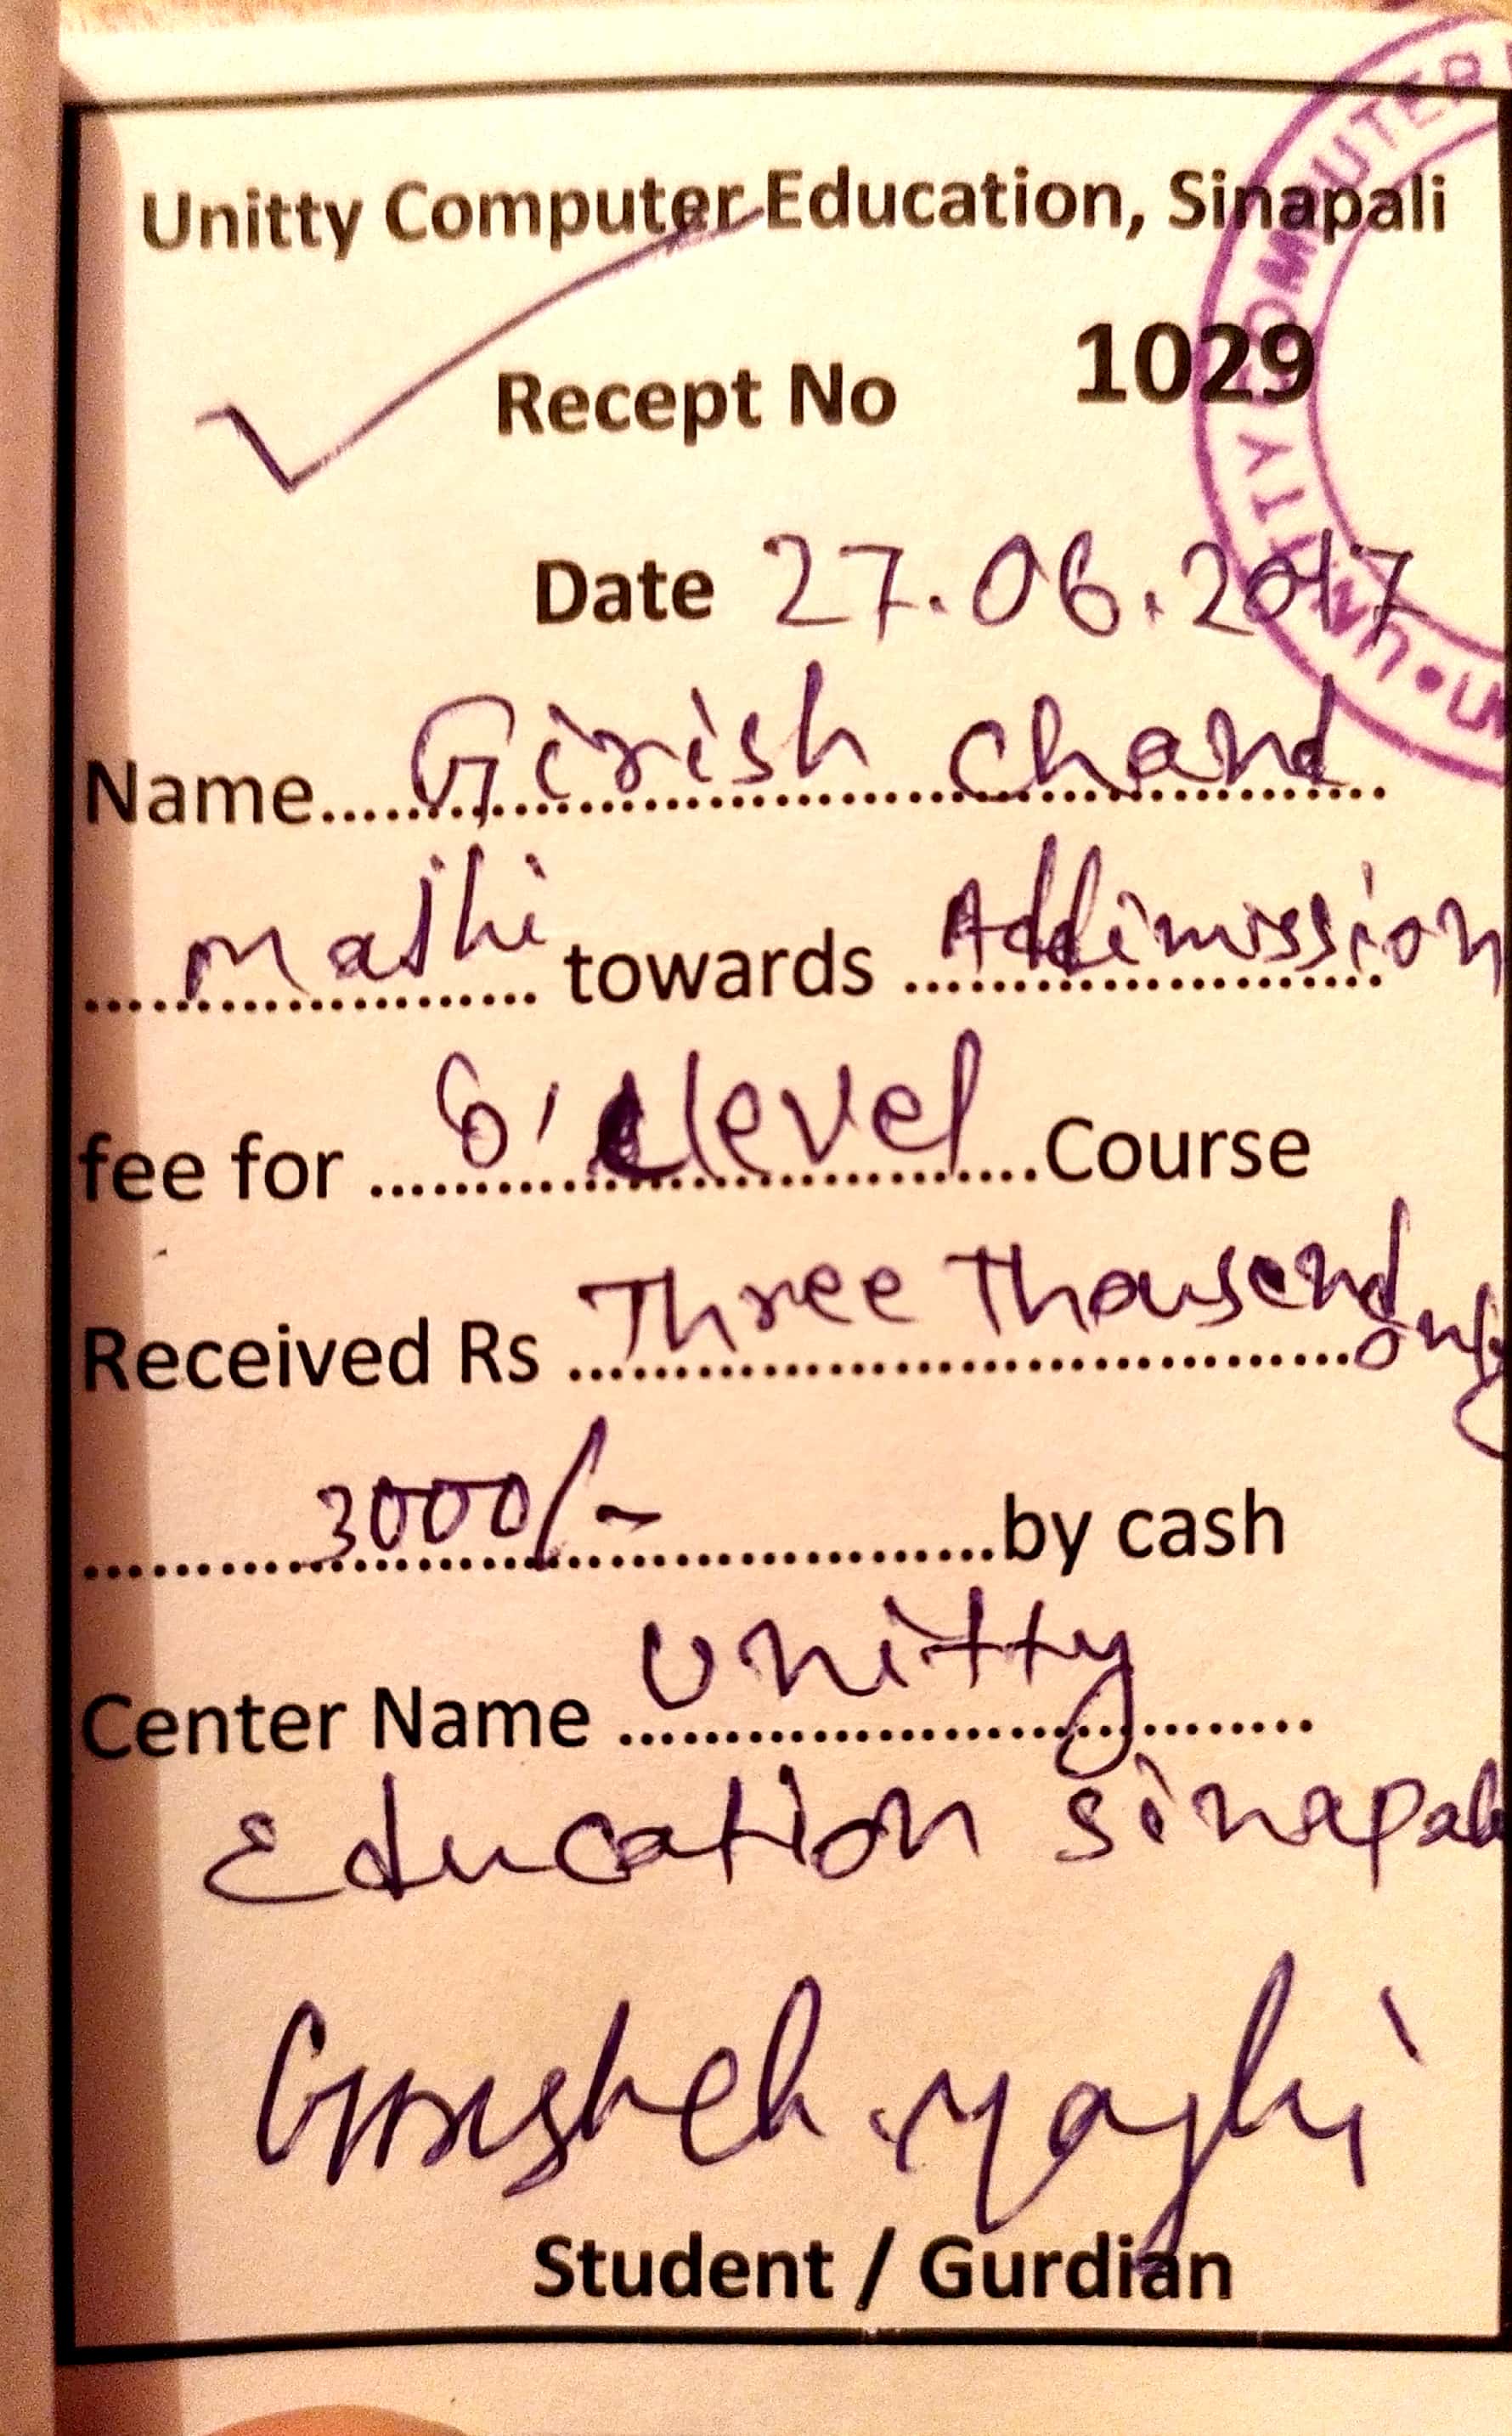 Unitty Computer Education, Sinapali
Recept No 1029
Date 27.06.2017
Name.....Girish chand
Majhi towards Addimission
fee for O' level Course
Received Rs Three Thousend only
3000/- by cash
Center Name Unitty
Education Sinapali
Girishch. Majhi
Student / Gurdian
UNITTY COMPUTER